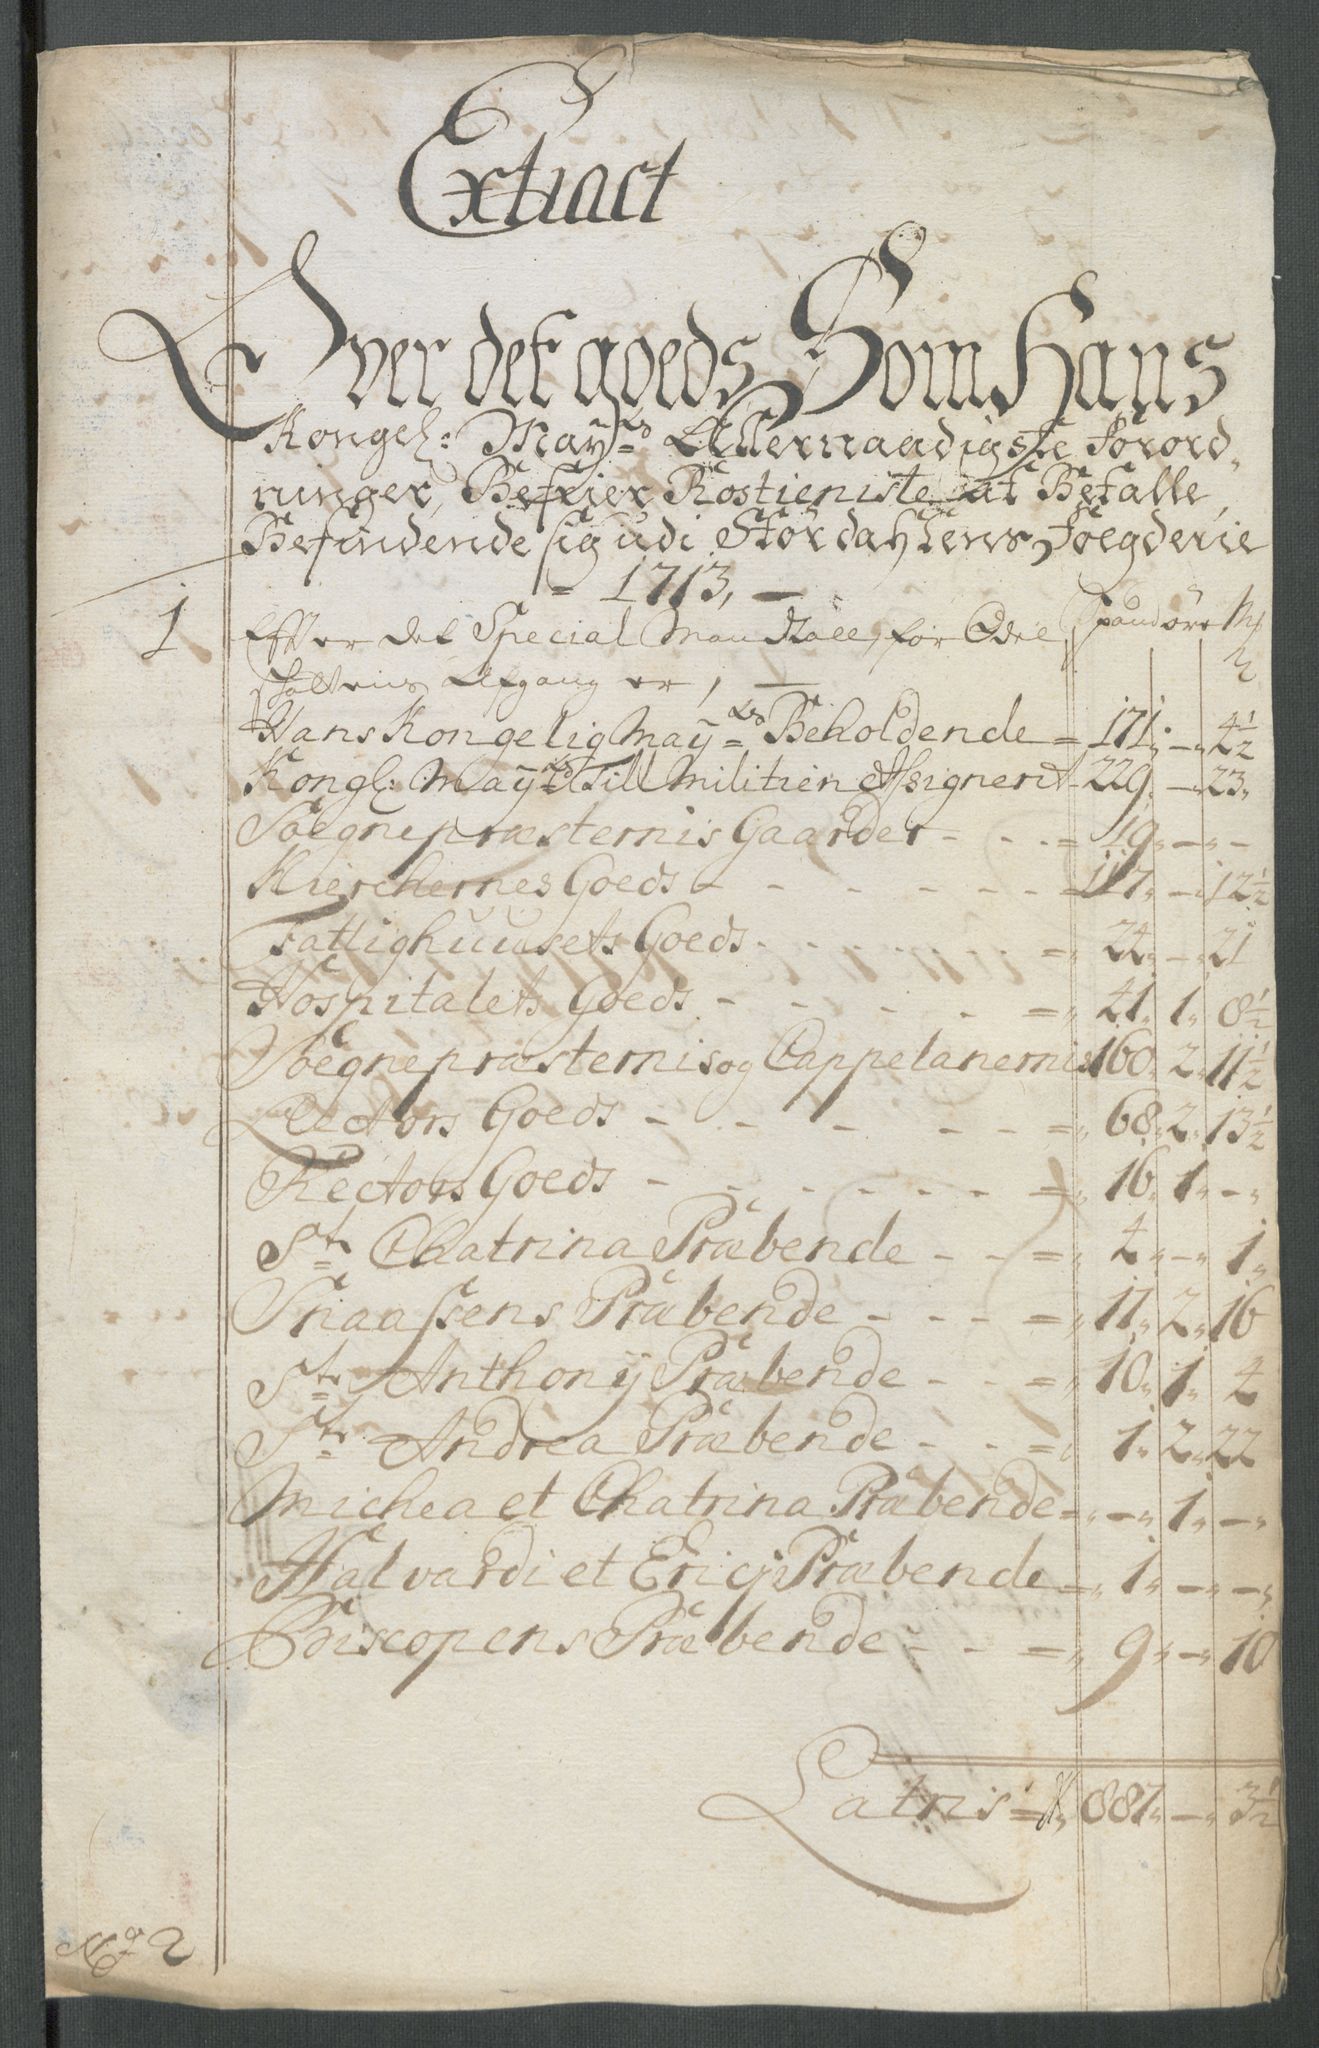 Extract
Over det goeds Som Hans
Kongel: Maÿ:ts Allernaadigste Forord,
ninger, Befrier Rostieniste at Befatte,
Befindende sig udi Størdahlens Foegderie
= 1713, —
1 Effter det Special Mandtall, for Odel Spand öre Mk
schattens Afgang er, —
Hans Kongelig Maÿ:ts Beholdende = 171 „ — „ 4½
Kongl: Maÿ:ts Till Militien Assignerit - 229 „ — „ 23 „
Soegnepræsternis Gaarder - - - = 19 „ — „ -
Kierchernes Goeds - - - - - - = 117 „ — „ 12½
Fattighuusets Goeds - - - - - = „ 24 „ — „ 21
Hospitalets Goeds - - - - - = „ 41 „ 1 „ 8½
Soegnepræsternis og Cappelanernis 160 „ 2 „ 11½
Lectors Goeds - - - - - - = „ 68 „ 2 „ 13½
Rectors Goeds - - - - - - = „ 16 „ 1 „ - „
St: Chatrina Præbende - - - = „ 4 „ — „ 1 „
Snaassens Præbende - - - - = „ 11 „ 2 „ 16
St: Anthonÿ Præbende - - - = „ 10 „ 1 „ 4
St: Andrea Præbende - - - = „ 1 „ 2 „ 22
Michea et Chatrina Præbende = „ — „ 1 „ — „
Halvardi et Ericj Præbende = „ 1 „ — „ — „
Biscopens Præbende - - - = „ 9 „ — „ 10
Latris = „ 887 „ — „ 3½
No 2